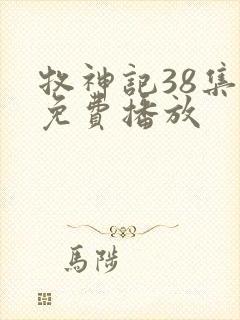 牧神記38集
免費播放
馬陟